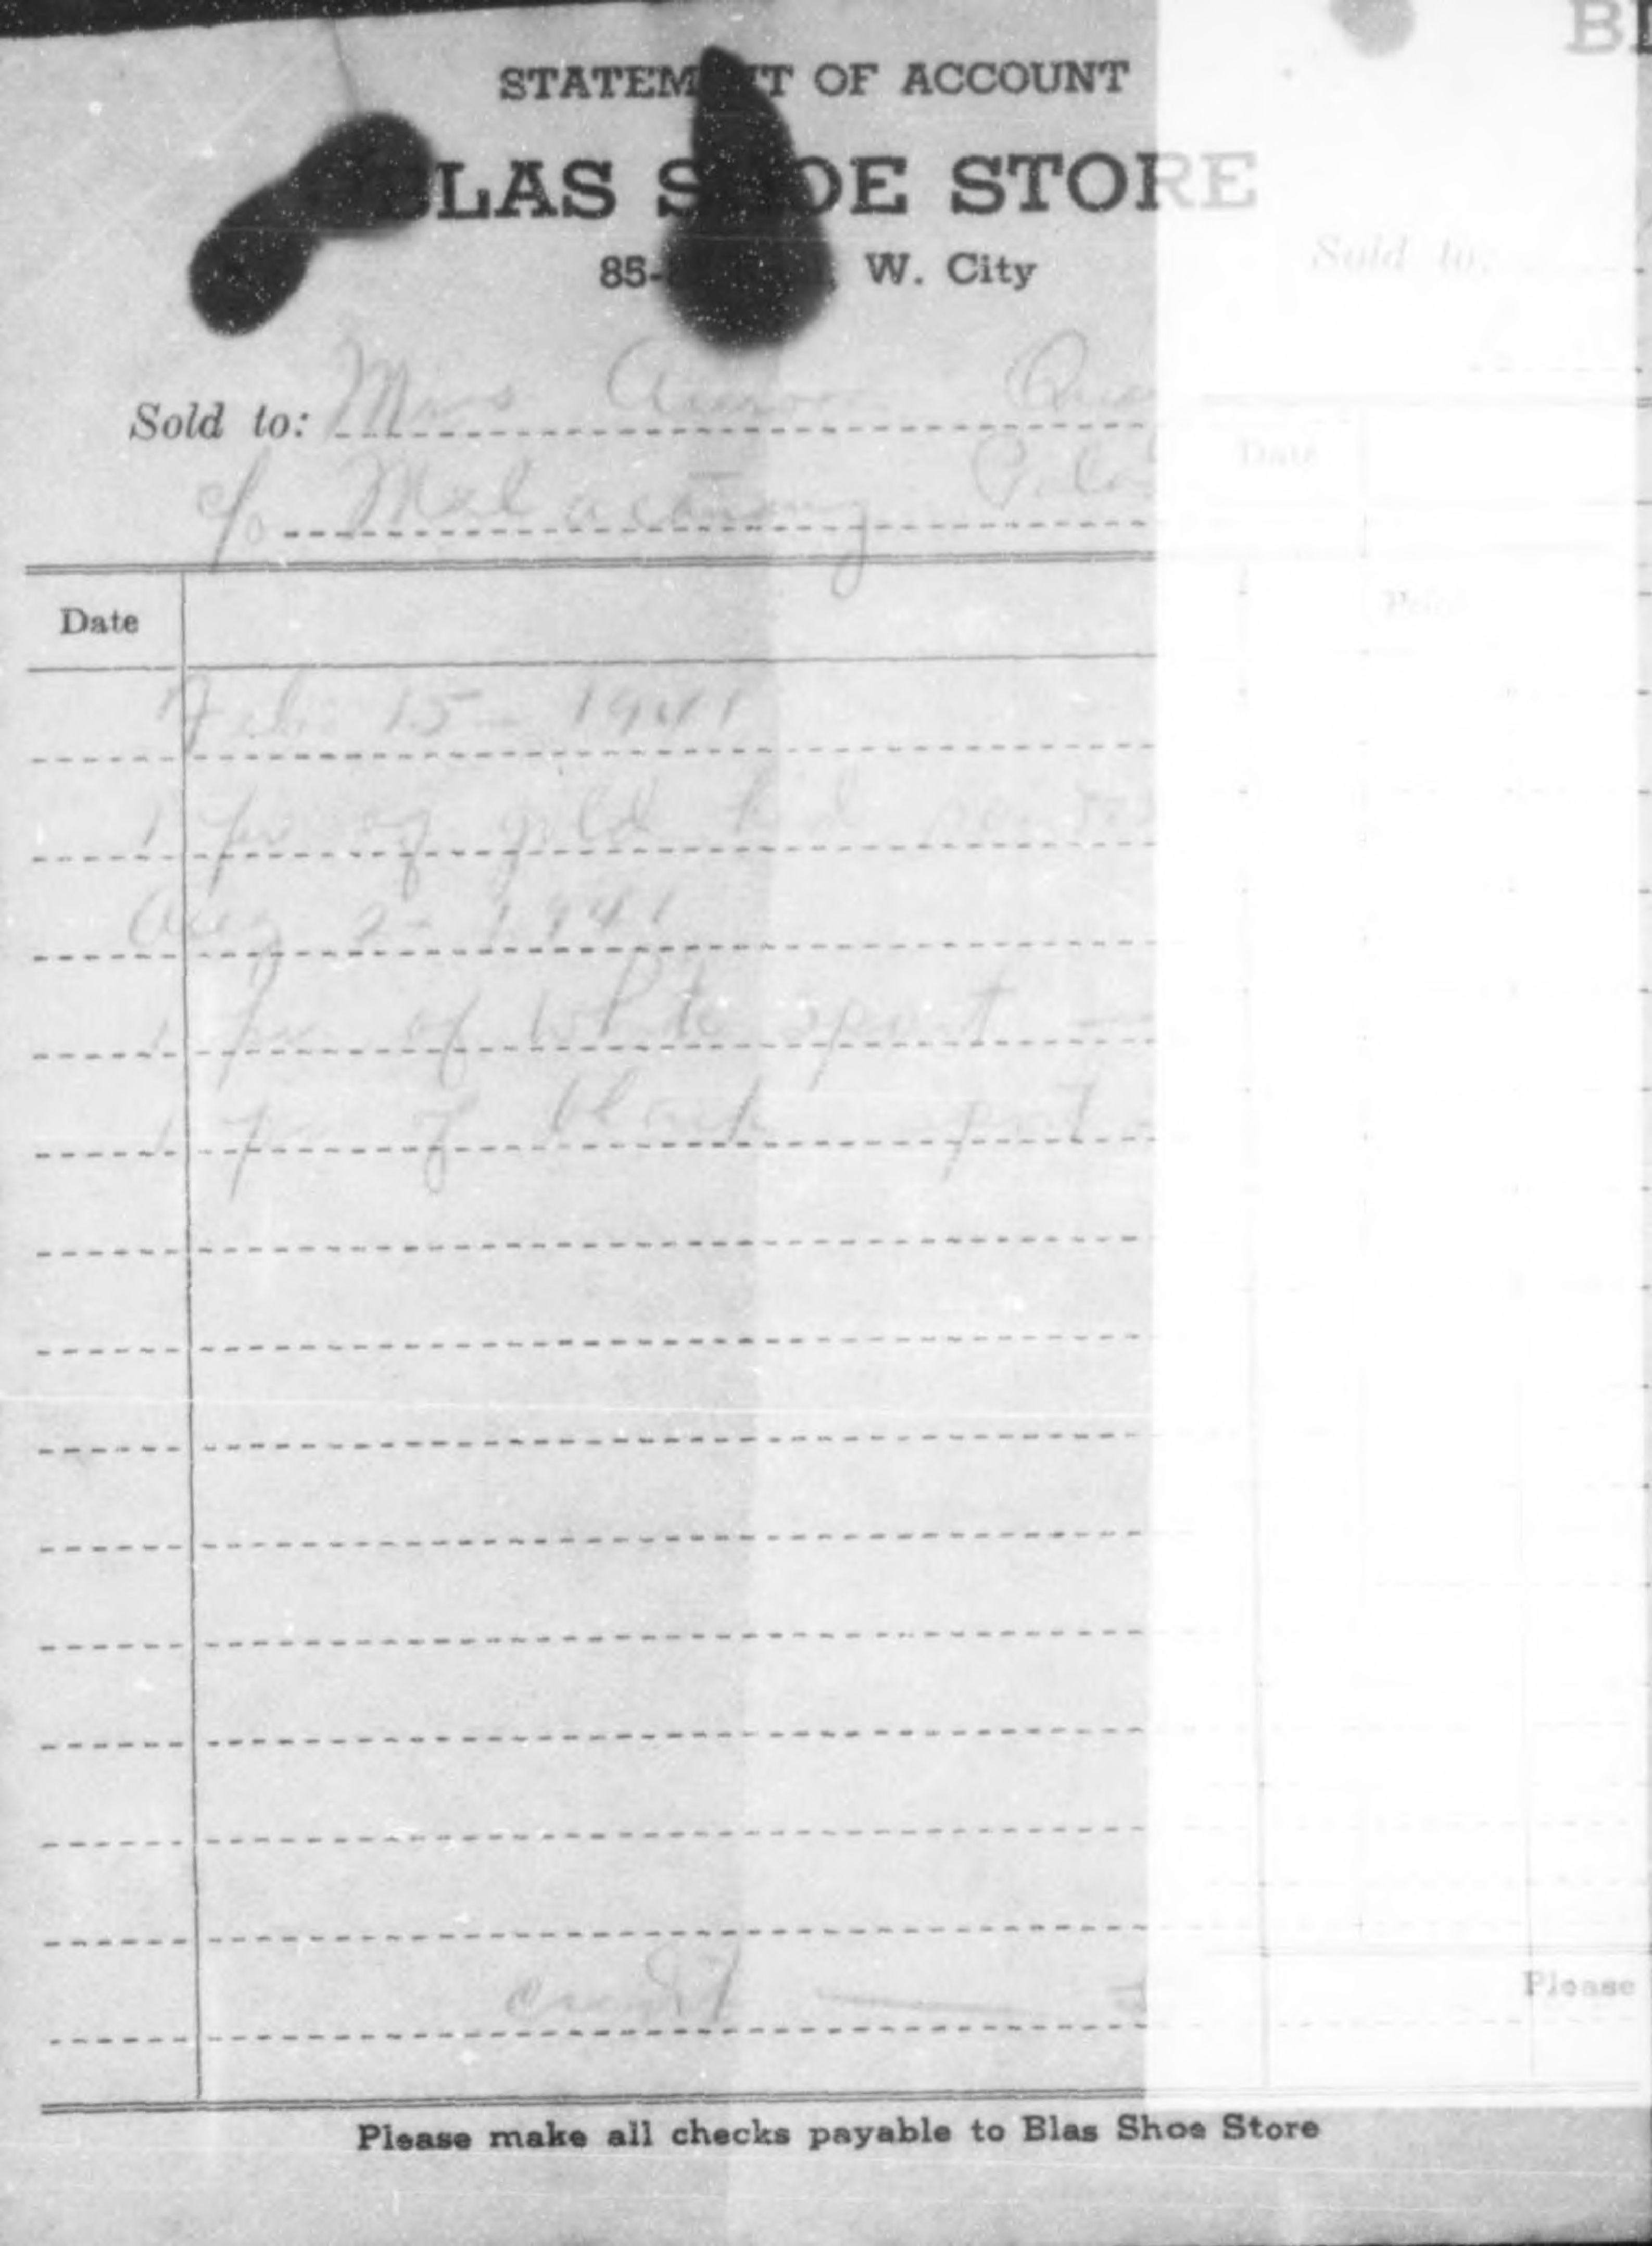 STATEMENT OF ACCOUNT
BLAS SHOE STORE
85- W. City
Sold to: Mrs Aurora
c/o Malacañang
Date
Feb. 15 - 1941
1 pr of gold kid
Aug 2 - 1941
1 pr of white sport
1 pr of black sport
credit
Please make all checks payable to Blas Shoe Store
Sold to:
Date
Price
Please